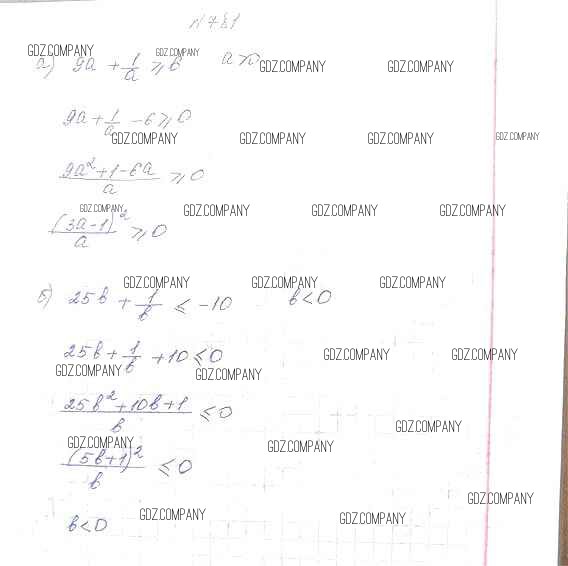 N 781
GDZ.COMPANY GDZ.COMPANY
а) 9a + 1/a ≥ 6 a >
GDZ.COMPANY GDZ.COMPANY
9a + 1/a - 6 ≥ 0
GDZ.COMPANY GDZ.COMPANY GDZ.COMPANY GDZ.COMPANY
(9a² + 1 - 6a)/a ≥ 0
GDZ.COMPANY GDZ.COMPANY GDZ.COMPANY GDZ.COMPANY
(3a - 1)²/a ≥ 0
GDZ.COMPANY GDZ.COMPANY GDZ.COMPANY
б) 25b + 1/b ≤ -10 b < 0
25b + 1/b + 10 ≤ 0
GDZ.COMPANY GDZ.COMPANY
GDZ.COMPANY GDZ.COMPANY
(25b² + 10b + 1)/b ≤ 0
GDZ.COMPANY
GDZ.COMPANY GDZ.COMPANY
(5b + 1)²/b ≤ 0
GDZ.COMPANY
b < 0
GDZ.COMPANY GDZ.COMPANY